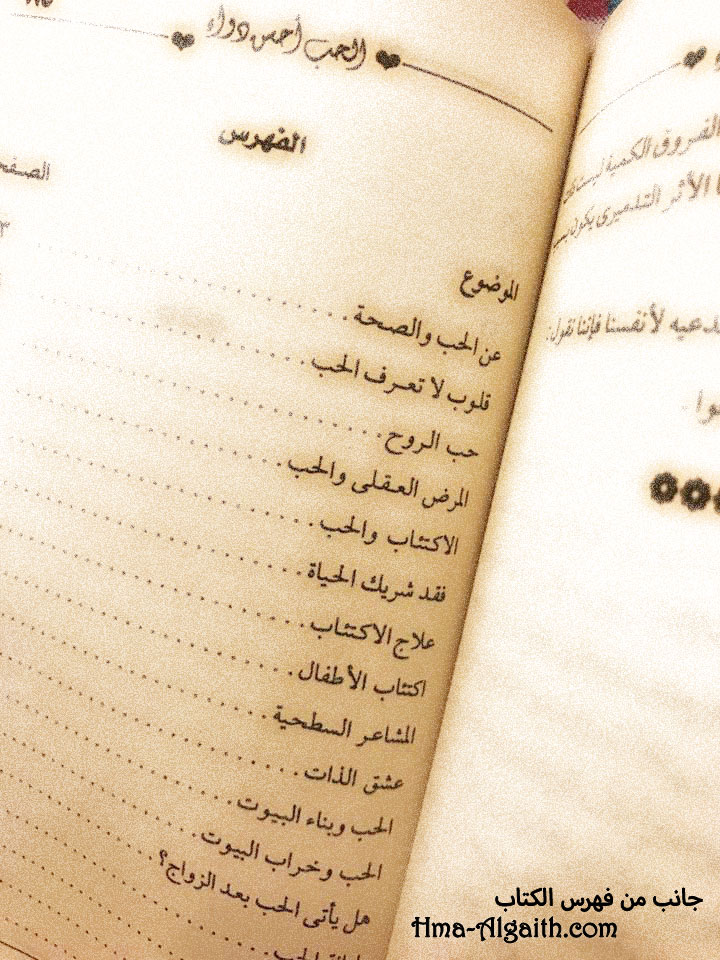 الحب أحسن دواء
الفهرس
الموضوع
عن الحب والصحة
قلوب لا تعرف الحب
حب الروح
المرض العقلى والحب
الاكتئاب والحب
فقد شريك الحياة
علاج الاكتئاب
اكتئاب الأطفال
المشاعر السطحية
عشق الذات
الحب وبناء البيوت
الحب وخراب البيوت
هل يأتى الحب بعد الزواج؟
الفروق الكمية ليست
الأثر التدميرى يكون
لأنفسنا فإننا نقول:
جانب من فهرس الكتاب
Hma-Algaith.com